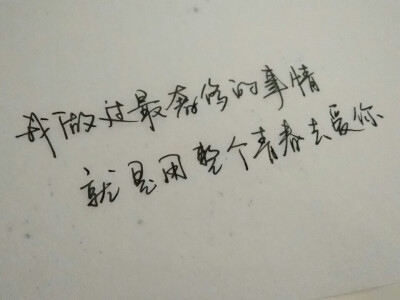 我做过最奢侈的事情
就是用整个青春去爱你